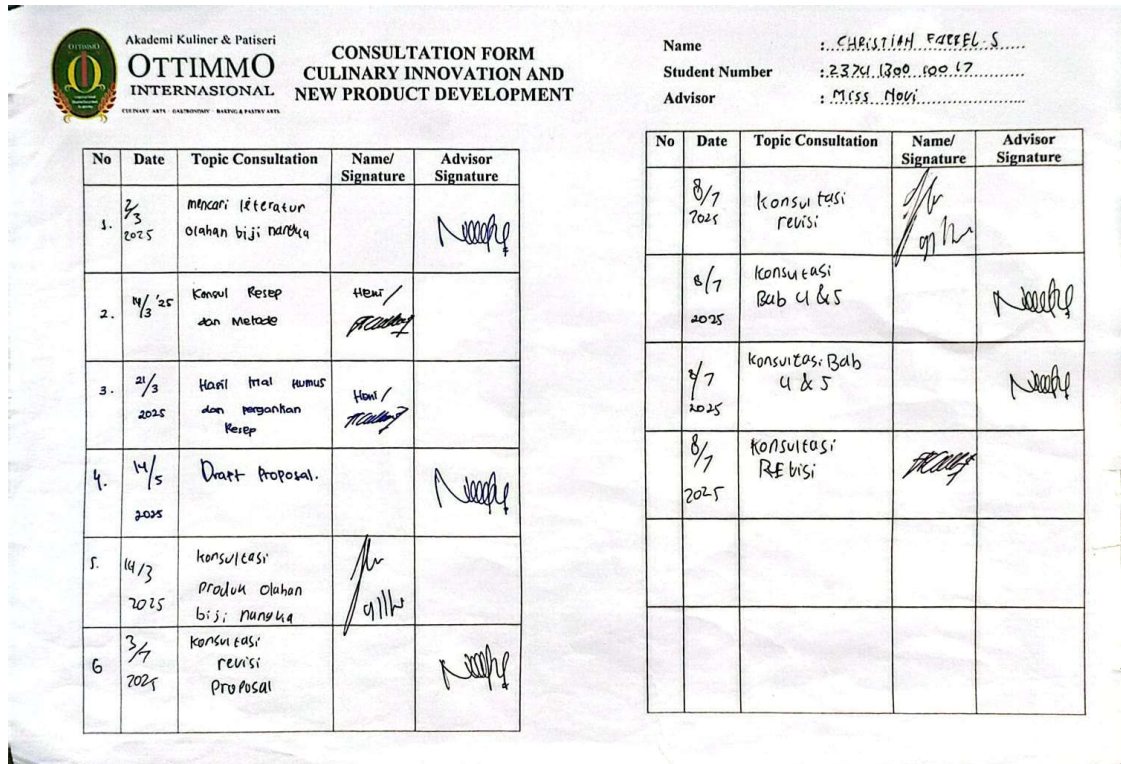 OTTIMMO
Akademi Kuliner & Patiseri
OTTIMMO
INTERNASIONAL
CULINARY ARTS GASTRONOMY BAKING & PASTRY ARTS
CONSULTATION FORM
CULINARY INNOVATION AND
NEW PRODUCT DEVELOPMENT
Name : CHRISTIAN FARREL.S
Student Number : 2374 1300 100 17
Advisor : Miss Novi
No Date Topic Consultation Name/ Advisor
Signature Signature
1. 2/3 2025 mencari literatur
olahan biji nangka
2. 14/3 '25 Konsul Resep Heni/
dan Metode
3. 21/3 Hasil trial Humus Heni/
2025 dan pergantian
Resep
4. 14/5 Draft Proposal.
2025
5. 14/3 konsultasi
2025 produk olahan
biji nangka
6 3/7 konsultasi
2025 revisi
proposal
No Date Topic Consultation Name/ Advisor
Signature Signature
8/7 konsultasi
2025 revisi
8/7 konsultasi
2025 Bab 4 & 5
8/7 konsultasi Bab
2025 4 & 5
8/7 konsultasi
2025 REVisi